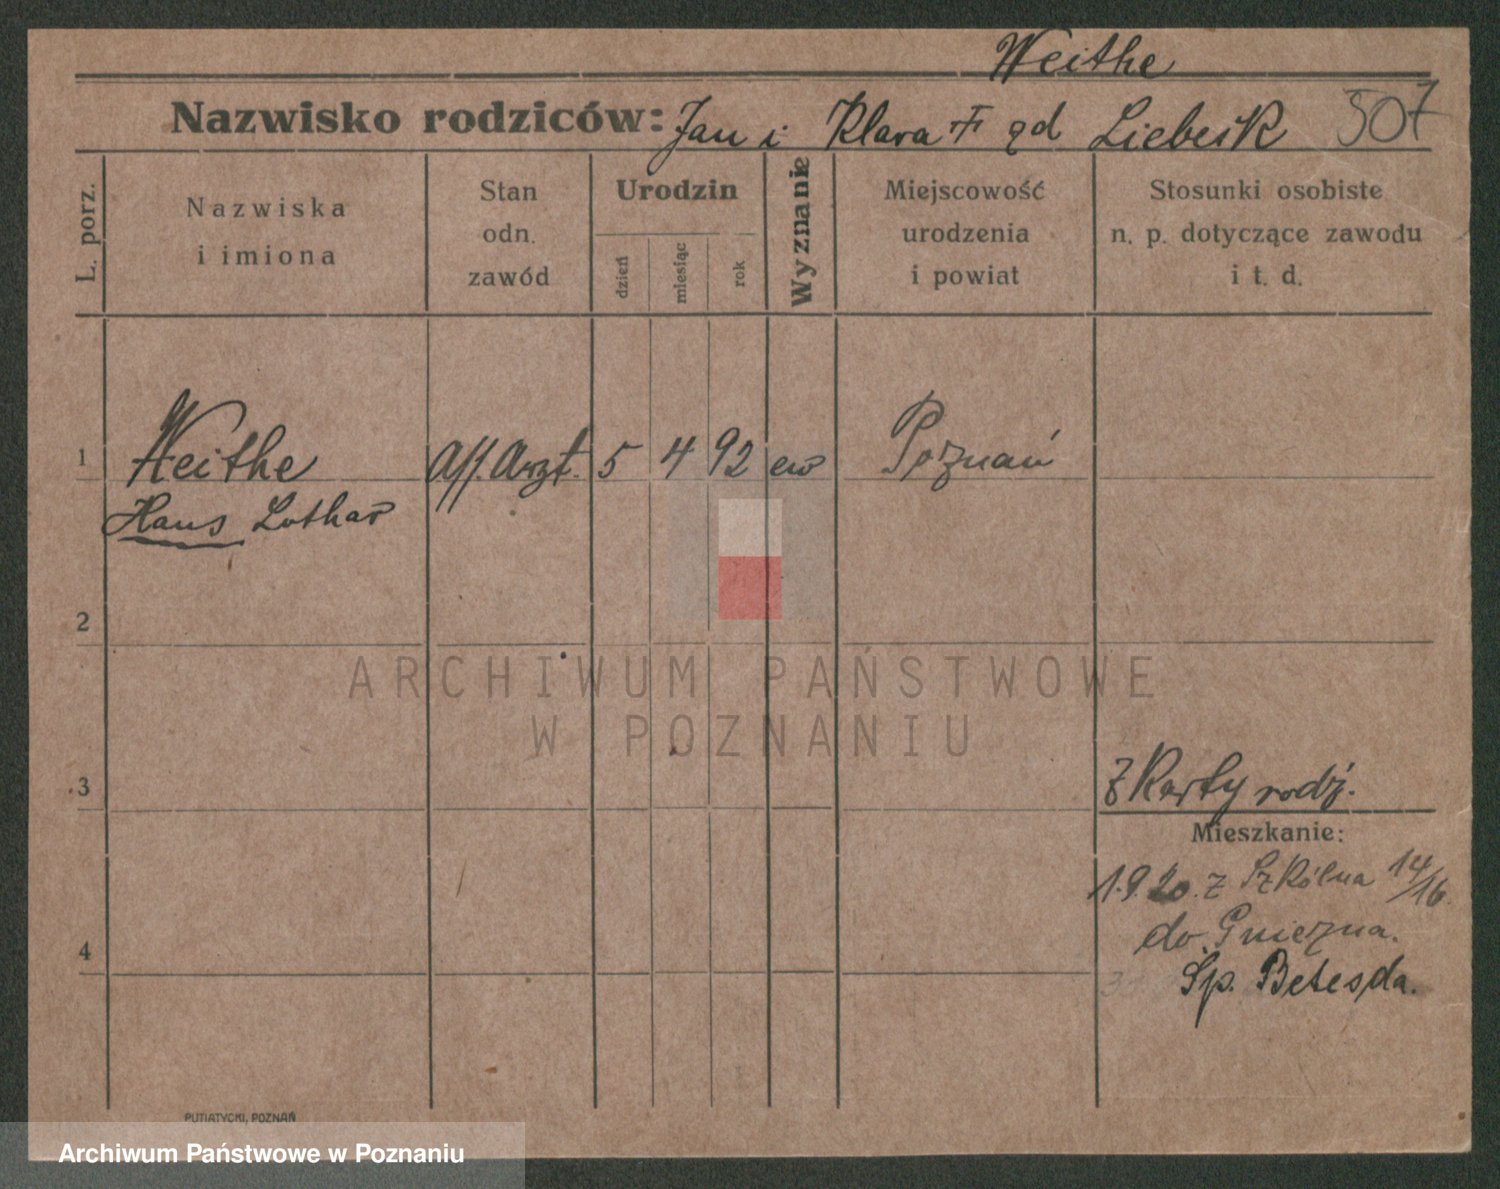 Weithe
Nazwisko rodziców: Jan i Klara
507
L. porz.
Nazwiska
i imiona
Stan
odn.
zawód
Urodzin
dzień
miesiąc
rok
Wyznanie
Miejscowość
urodzenia
i powiat
Stosunki osobiste
n. p. dotyczące zawodu
i t. d.
1 Weithe Ass. Arzt. 5 4 92 ew Poznań
Hans Lothar
2
ARCHIWUM PAŃSTWOWE
W POZNANIU
3 z Karty rodz.
Mieszkanie:
1.9.20. z Szkólna 14/16
do Gniezna.
4
Sp. Betesda.
PUTIATYCKI, POZNAŃ
Archiwum Państwowe w Poznaniu